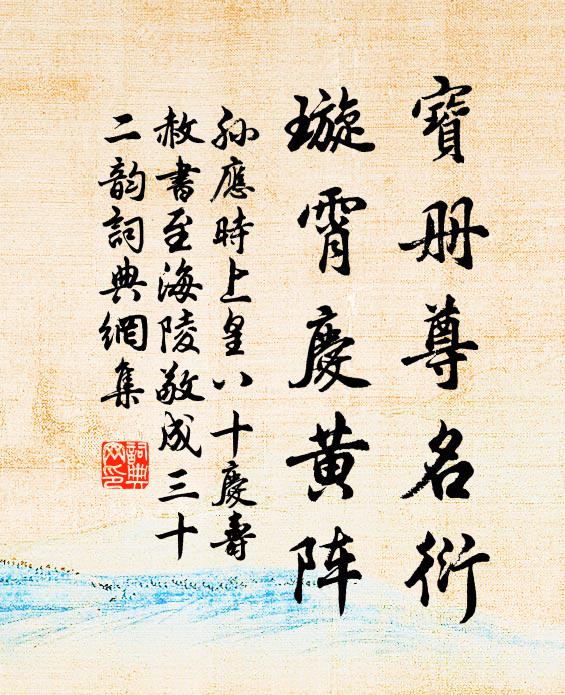 寶册尊名衍
璇霄慶黄阵
孙應時上皇八十慶壽
赦書至海陵敬成三十
二韵詞典網集
詞典網印